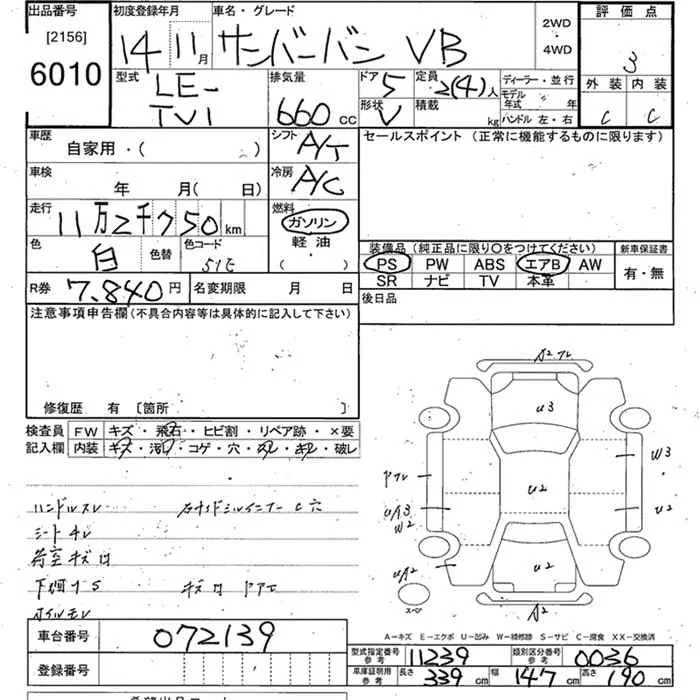 出品番号 初度登録年月 車名・グレード 2WD・4WD 評価点
[2156]
6010 14 11月 サンバーバン VB 3
型式 LE-TV1 排気量 660 cc ドア 5 定員 2(4)人 ディーラー・並行 外装 内装
形状 V 積載 kg モデル年式 年 ハンドル 左・右 C C
車歴 自家用・( ) シフト A/T セールスポイント(正常に機能するものに限ります)
車検 年 月( 日) 冷房 A/C
走行 11万2千750 km 燃料 ガソリン
軽油
( ・ )
色 白 色替 色コード 51E 装備品(純正品に限り○をつけてください) 新車保証書
PS PW ABS エアB AW 有・無
SR ナビ TV 本革
R券 7,840円 名変期限 月 日 後日品
注意事項申告欄(不具合内容等は具体的に記入して下さい)
修復歴 有 [箇所 ]
検査員 FW キズ・飛石・ヒビ割・リペア跡・×要
記入欄 内装 キズ・汚レ・コゲ・穴・スレ・キレ・破レ
A2
U3
W3
U2
U2
UA3
W2
UA2
U2
A2
スペア
ハンドルスレ
シート
下廻りS
A-キズ E-エクボ U-凹み W-補修跡 S-サビ C-腐食 XX-交換済
車台番号 072139
登録番号
型式指定番号 参考 11239 類別区分番号 参考 0036
車庫証明用 参考 長さ 339 cm 幅 147 cm 高さ 190 cm